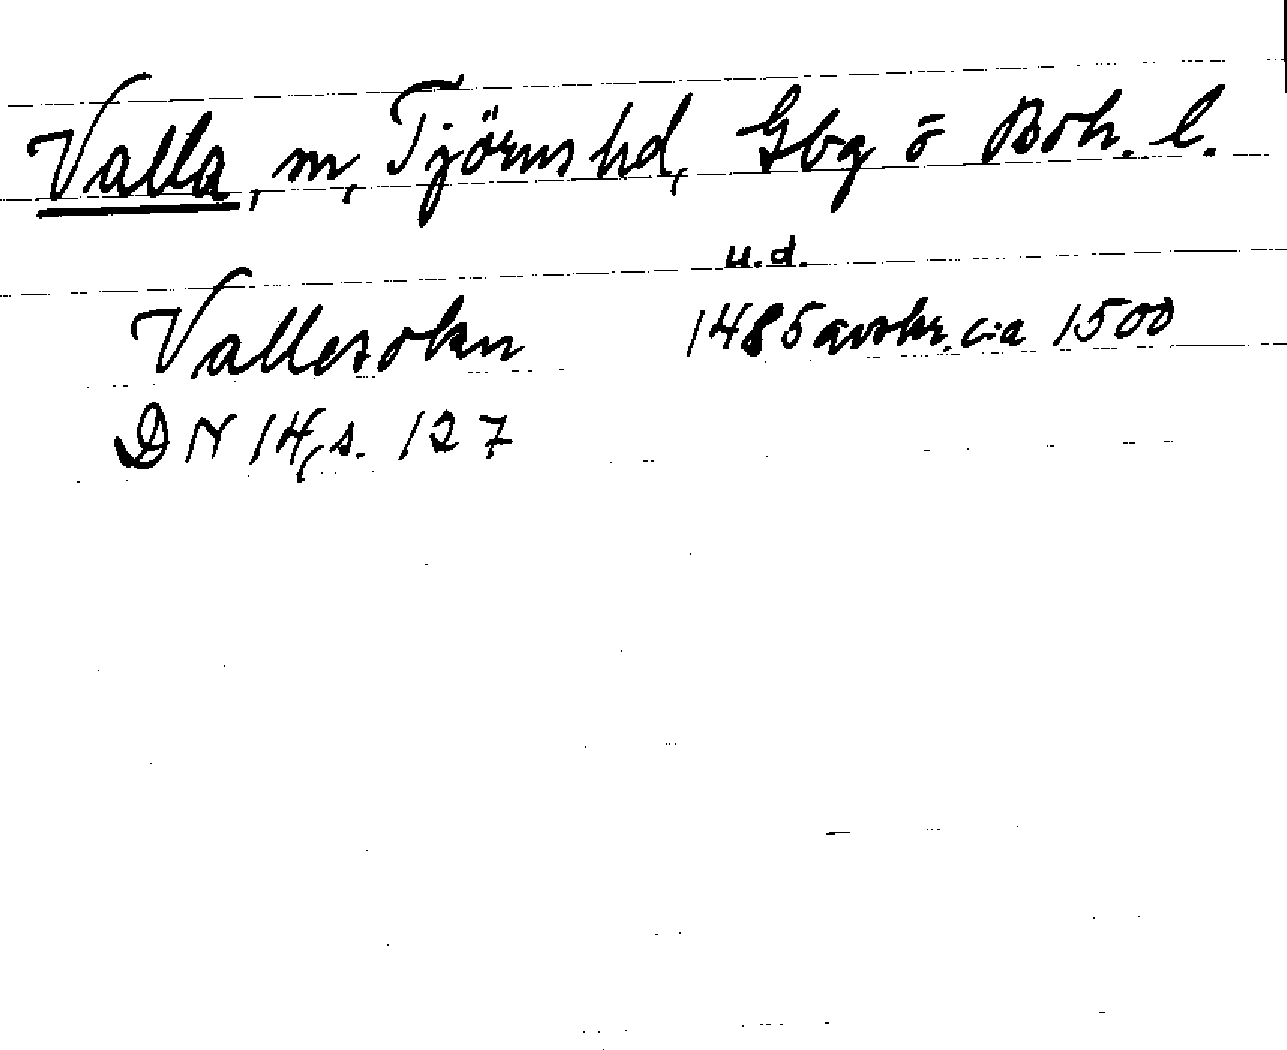 Valla, m, Tjörns hd, Gbg o Boh. l.
u.d.
Vallesokn 1485 avskr. c:a 1500
DN 14, s. 127